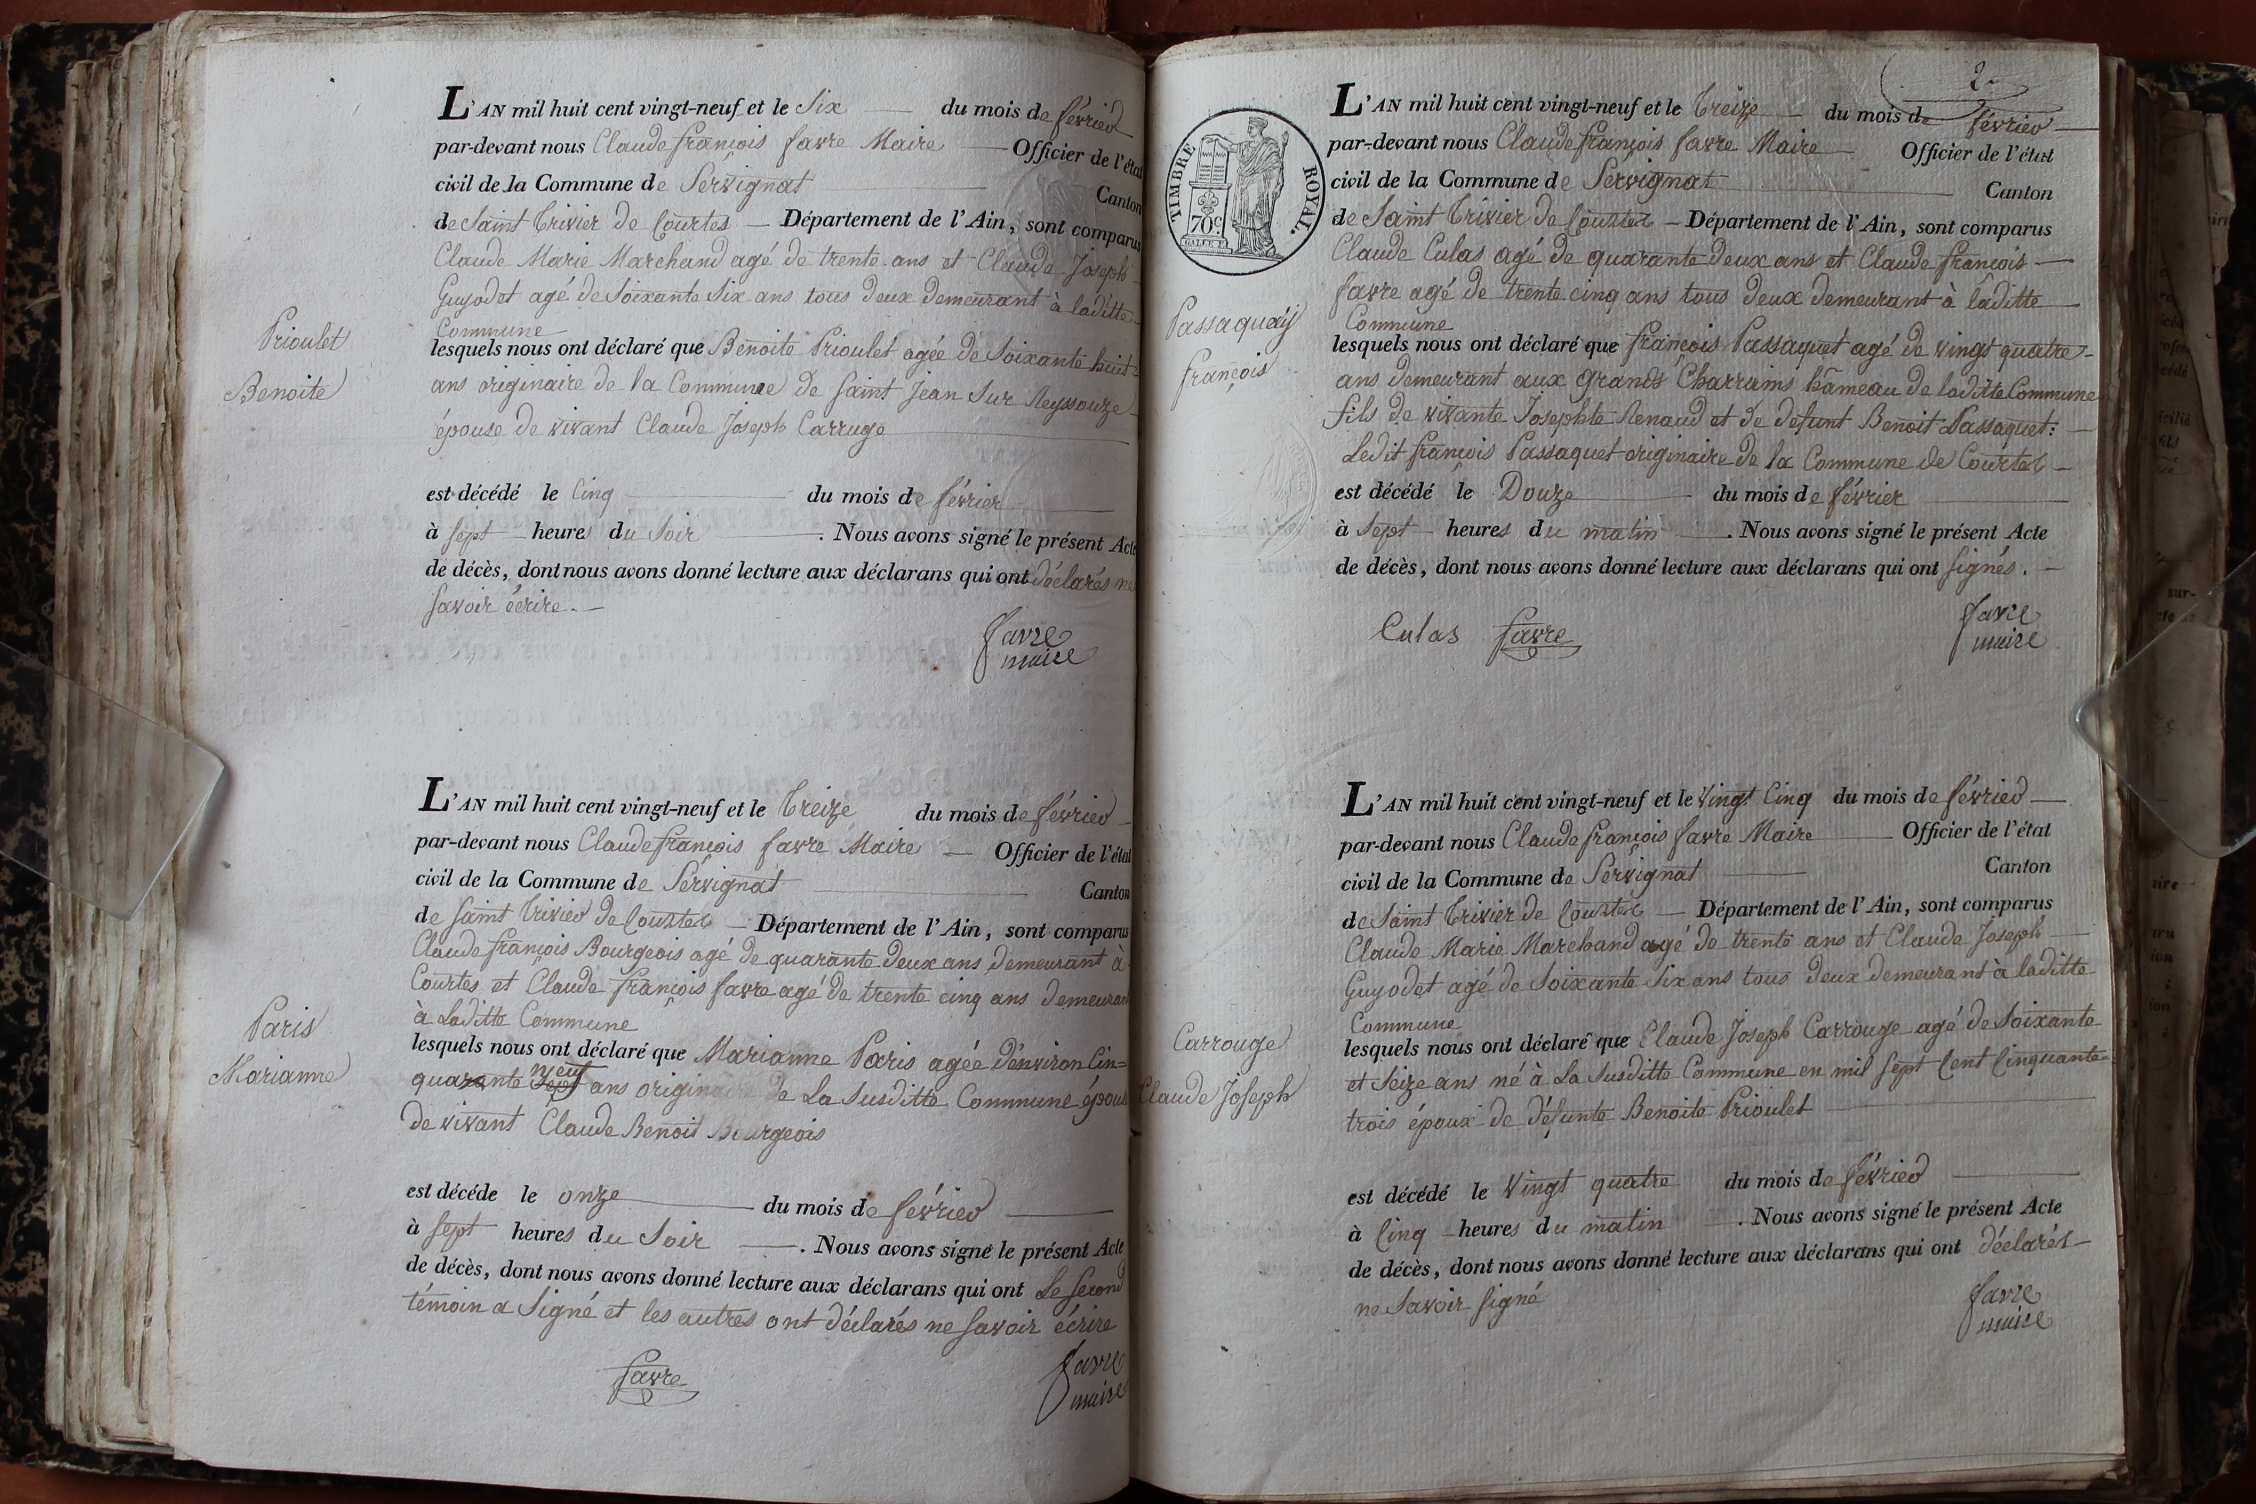 L'AN mil huit cent vingt-neuf et le Six du mois de février
par-devant nous Claude françois favre Maire Officier de l'état
civil de la Commune de Servignat Canton
de Saint Trivier de Courtes Département de l'Ain, sont comparus
Claude Marie Marchand agé de trente ans et Claude Joseph
Guyodet agé de Soixante Six ans tous deux demeurant à laditte
Commune
Prioulet
Benoite
lesquels nous ont déclaré que Benoite Prioulet agée de Soixante huit
ans originaire de la Commune de Saint Jean Sur Reyssouze
épouse de vivant Claude Joseph Carruge
est décédé le Cinq du mois de février
à Sept heures du Soir. Nous avons signé le présent Acte
de décès, dont nous avons donné lecture aux déclarans qui ont déclarés ne
savoir écrire.
favre
maire
L'AN mil huit cent vingt-neuf et le Treize du mois de février
par-devant nous Claude françois favre Maire Officier de l'état
civil de la Commune de Servignat Canton
de Saint Trivier de Courtes Département de l'Ain, sont comparus
Claude françois Bourgeois agé de quarante deux ans demeurant à
Courtes et Claude françois favre agé de trente cinq ans demeurant
à laditte Commune
Paris
Marianne
lesquels nous ont déclaré que Marianne Paris agée d'environ Cin=
quante neuf ans originaire de La Susditte Commune épouse
de vivant Claude Benoit Bourgeois
est décéde le onze du mois de février
à Sept heures du Soir. Nous avons signé le présent Acte
de décès, dont nous avons donné lecture aux déclarans qui ont Le Second
témoin a Signé et les autres ont déclarés ne Savoir écrire
favre
favre
maire
2
TIMBRE ROYAL.
70c
L'AN mil huit cent vingt-neuf et le Treize du mois de février
par-devant nous Claude françois favre Maire Officier de l'état
civil de la Commune de Servignat Canton
de Saint Trivier de Courtes Département de l'Ain, sont comparus
Claude Culas agé de quarante deux ans et Claude françois
favre agé de trente cinq ans tous deux demeurant à laditte
Commune
Passaquay
françois
lesquels nous ont déclaré que françois Passaquet agé de vingt quatre
ans demeurant aux grands Charrains hameau de laditte Commune
fils de vivante Josephte Renaud et de defunt Benoit Passaquet:
Ledit françois Passaquet originaire de la Commune de Courtes
est décédé le Douze du mois de février
à Sept heures du matin. Nous avons signé le présent Acte
de décès, dont nous avons donné lecture aux déclarans qui ont signés.
Culas favre
favre
maire
L'AN mil huit cent vingt-neuf et le Vingt Cinq du mois de février
par-devant nous Claude françois favre Maire Officier de l'état
civil de la Commune de Servignat Canton
de Saint Trivier de Courtes Département de l'Ain, sont comparus
Claude Marie Marchand agé de trente ans et Claude Joseph
Guyodet agé de Soixante Six ans tous deux demeurant à laditte
Commune
Carrouge
Claude Joseph
lesquels nous ont déclaré que Claude Joseph Carrouge agé de Soixante
et Seize ans né à La Susditte Commune en mil Sept Cent Cinquante
trois époux de défunte Benoite Prioulet
est décédé le Vingt quatre du mois de février
à Cinq heures du matin. Nous avons signé le présent Acte
de décès, dont nous avons donné lecture aux déclarans qui ont déclarés
ne Savoir signé
favre
maire